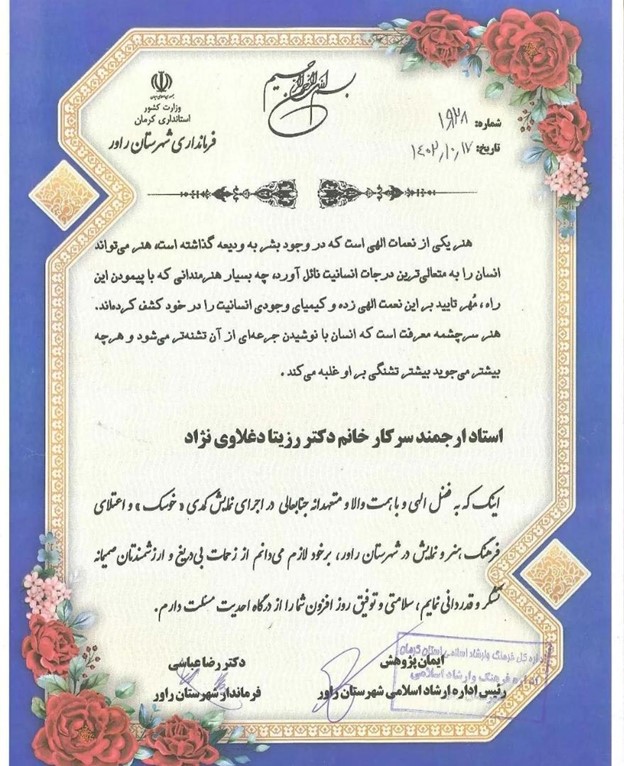 بسم الله الرحمن الرحیم
جمهوری اسلامی ایران
وزارت کشور
استانداری کرمان
فرمانداری شهرستان راور
شماره: ۱۹۲۸
تاریخ: ۱۴۰۲٫۱۰٫۱۷
هنر یکی از نعمات الهی است که در وجود بشر به ودیعه گذاشته است، هنر می‌تواند
انسان را به متعالی‌ترین درجات انسانیت نائل آورد، چه بسیار هنرمندانی که با پیمودن این
راه، مُهر تایید بر این نعمت الهی زده و کیمیای وجودی انسانیت را در خود کشف کرده‌اند.
هنر سرچشمه معرفت است که انسان با نوشیدن جرعه‌ای از آن تشنه‌تر می‌شود و هرچه
بیشتر می‌جوید بیشتر تشنگی بر او غلبه می‌کند.
استاد ارجمند سرکار خانم دکتر رزیتا دغلاوی نژاد
اینک که به فضل الهی و با همت والا و متعهدانه جنابعالی در اجرای نمایش کمدی «خوسک» و اعتلای
فرهنگ هنر و نمایش در شهرستان راور، برخود لازم می‌دانم از زحمات بی‌دریغ و ارزشمندتان صمیمانه
تشکر و قدردانی نمایم، سلامتی و توفیق روز افزون شما را از درگاه احدیت مسئلت دارم.
اداره کل فرهنگ وارشاد اسلامی استان کرمان
اداره فرهنگ وارشاد اسلامی
ایمان پژوهش
رئیس اداره ارشاد اسلامی شهرستان راور
دکتر رضا عباسی
فرماندار شهرستان راور